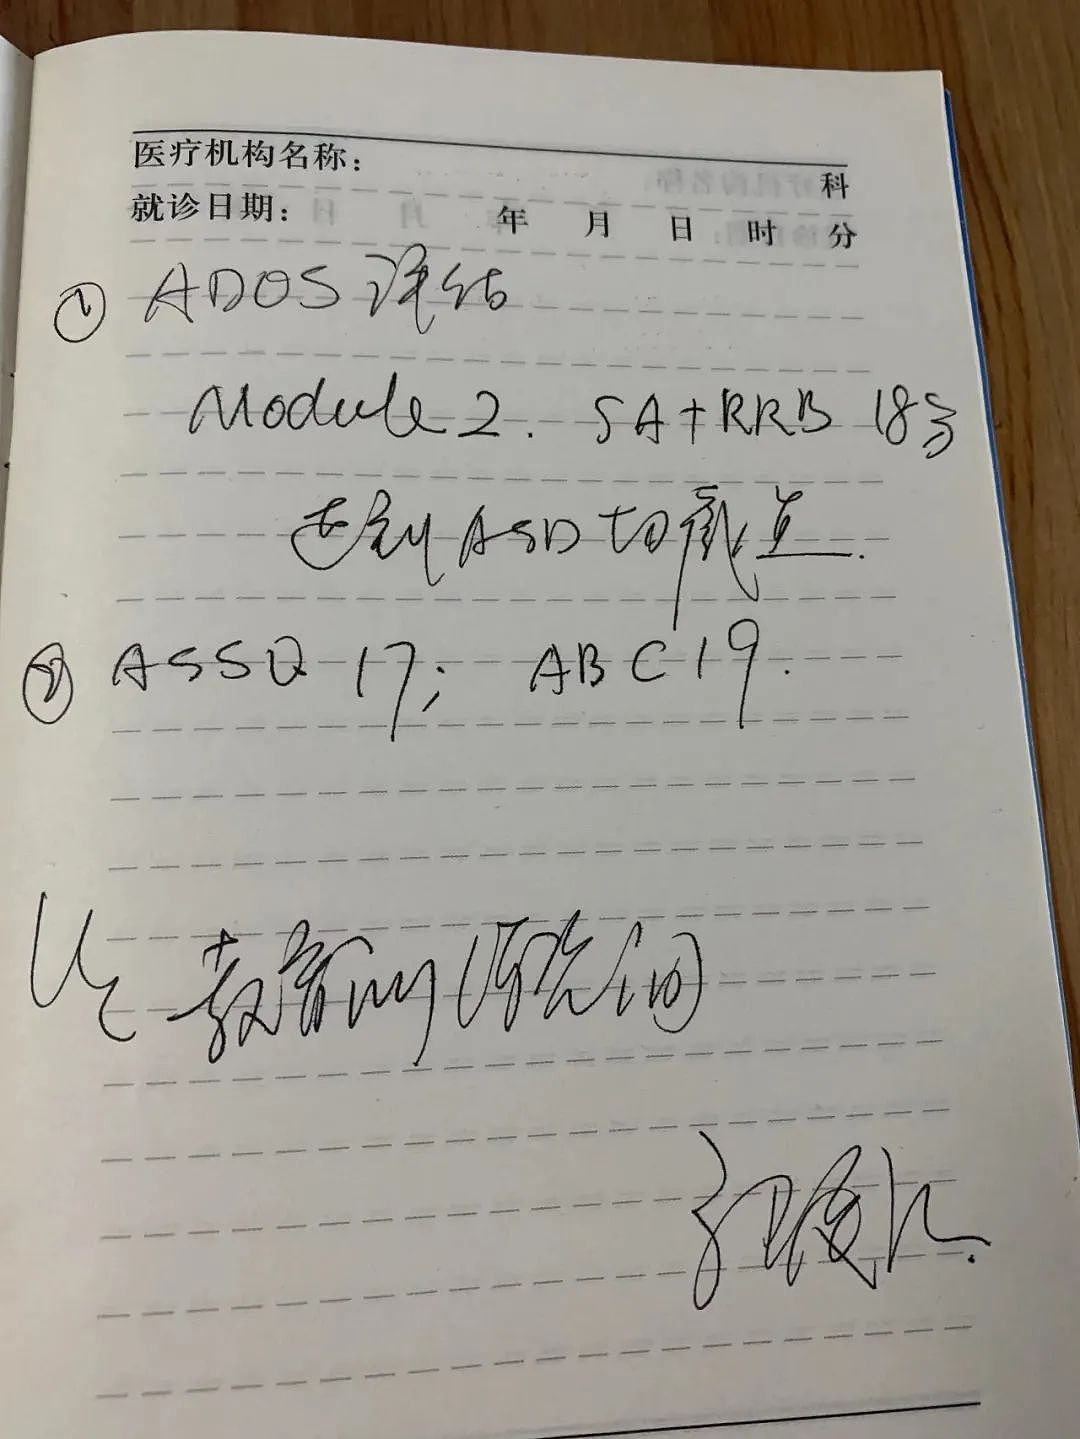 医疗机构名称: 科
就诊日期: 年 月 日 时 分
① ADOS 评估
Module 2. SA+RRB 18分
达到 ASD 切截点.
② ASSQ 17; ABC 19.
教育训